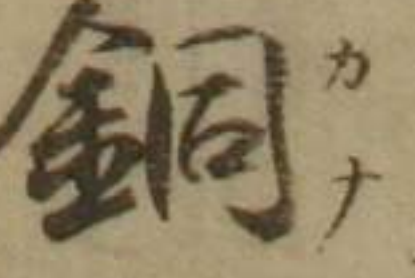 銅
カナ